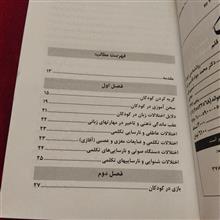 فهرست مطالب
مقدمه ۱۳
فصل اول
گریه کردن کودکان ۱۵
سخن آموزی در کودکان ۱۹
دلایل اختلالات زبان در کودکان
عقب ماندگی ذهنی و تأخیر در مهارتهای زبانی ۲۱
اختلالات عاطفی و نارسایی تکلمی ۲۲
اختلالات تکلمی و ضایعات مغزی و عصبی (آفازی) ۲۳
اختلالات دستگاه صوتی و نارسایی‌های تکلمی ۲۴
اختلالات شنوایی و نارساییهای تکلمی ۲۵
فصل دوم
بازی در کودکان ۲۷